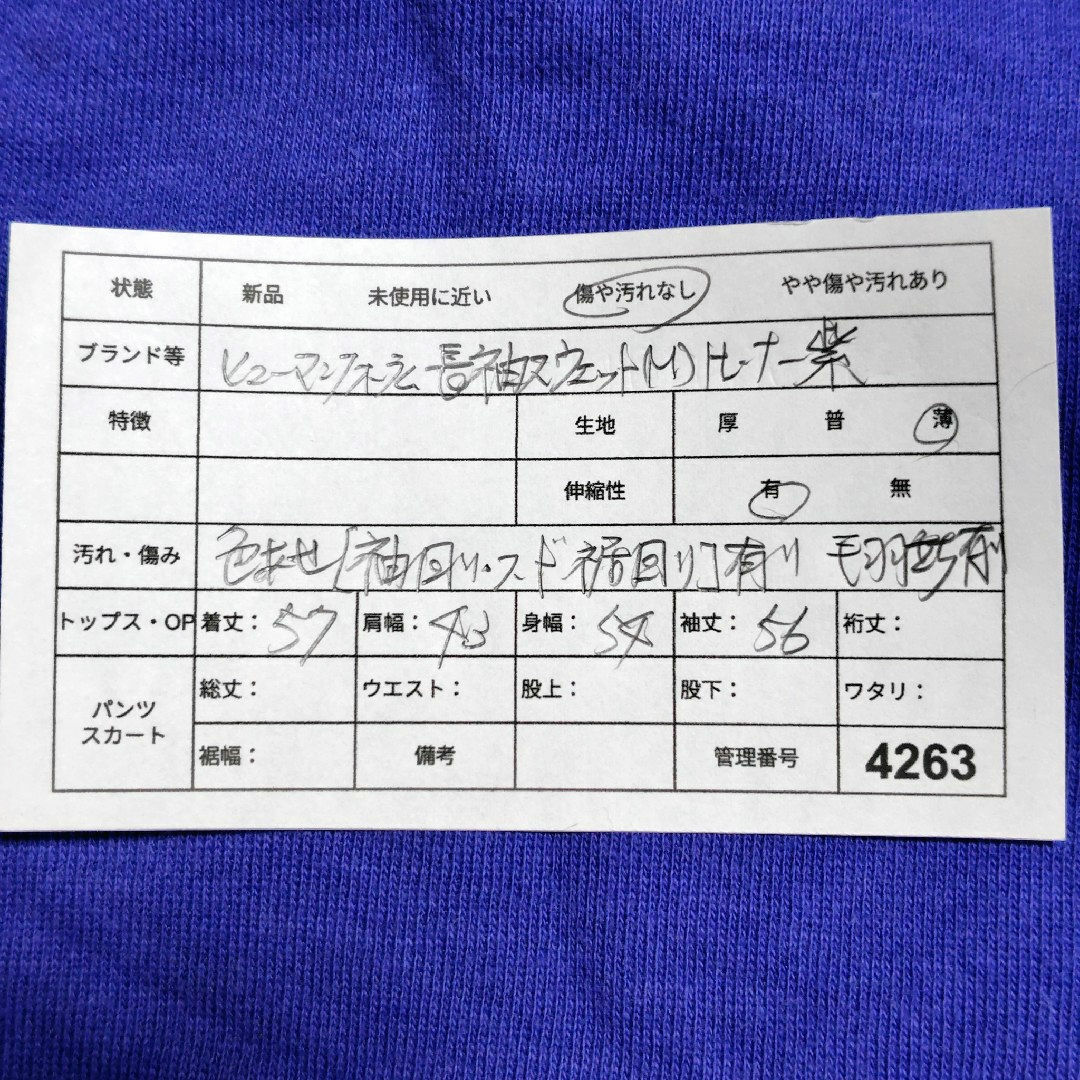 状態 新品 未使用に近い 傷や汚れなし やや傷や汚れあり
ブランド等 ヒューマンフォーラム 長袖スウェット(M)トレーナー紫
特徴 生地 厚 普 薄
伸縮性 有 無
汚れ・傷み 色あせ[袖回り・ 裾回り]有り 毛羽立ち有り
トップス・OP 着丈: 57 肩幅: 43 身幅: 54 袖丈: 56 裄丈:
パンツ
スカート
総丈: ウエスト: 股上: 股下: ワタリ:
裾幅: 備考 管理番号 4263